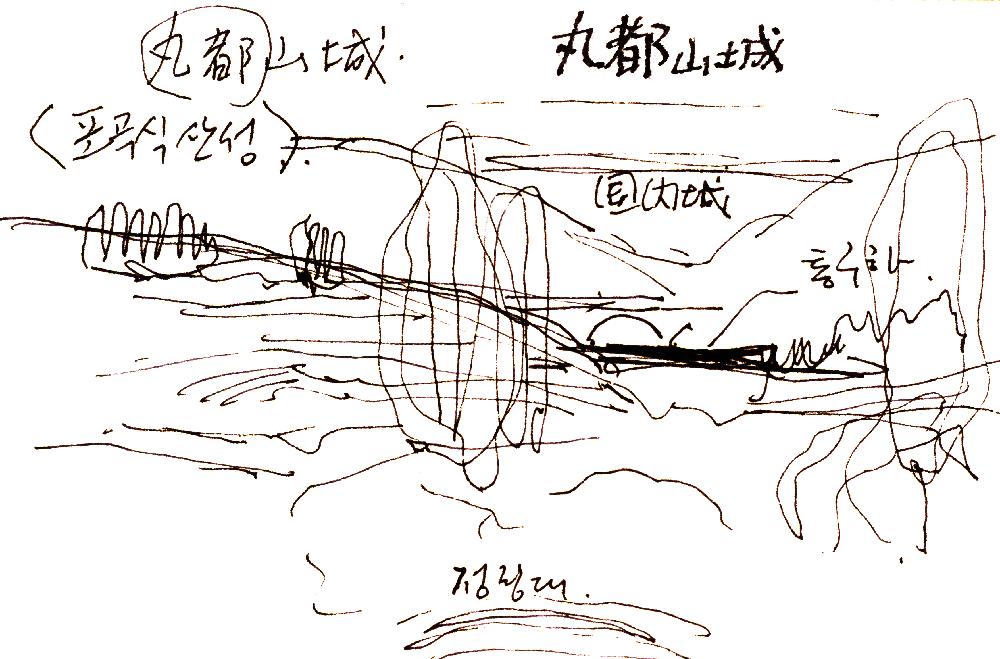 丸都山城.
丸都山城
(포곡식산성).
国内城
통구하.
점장대.